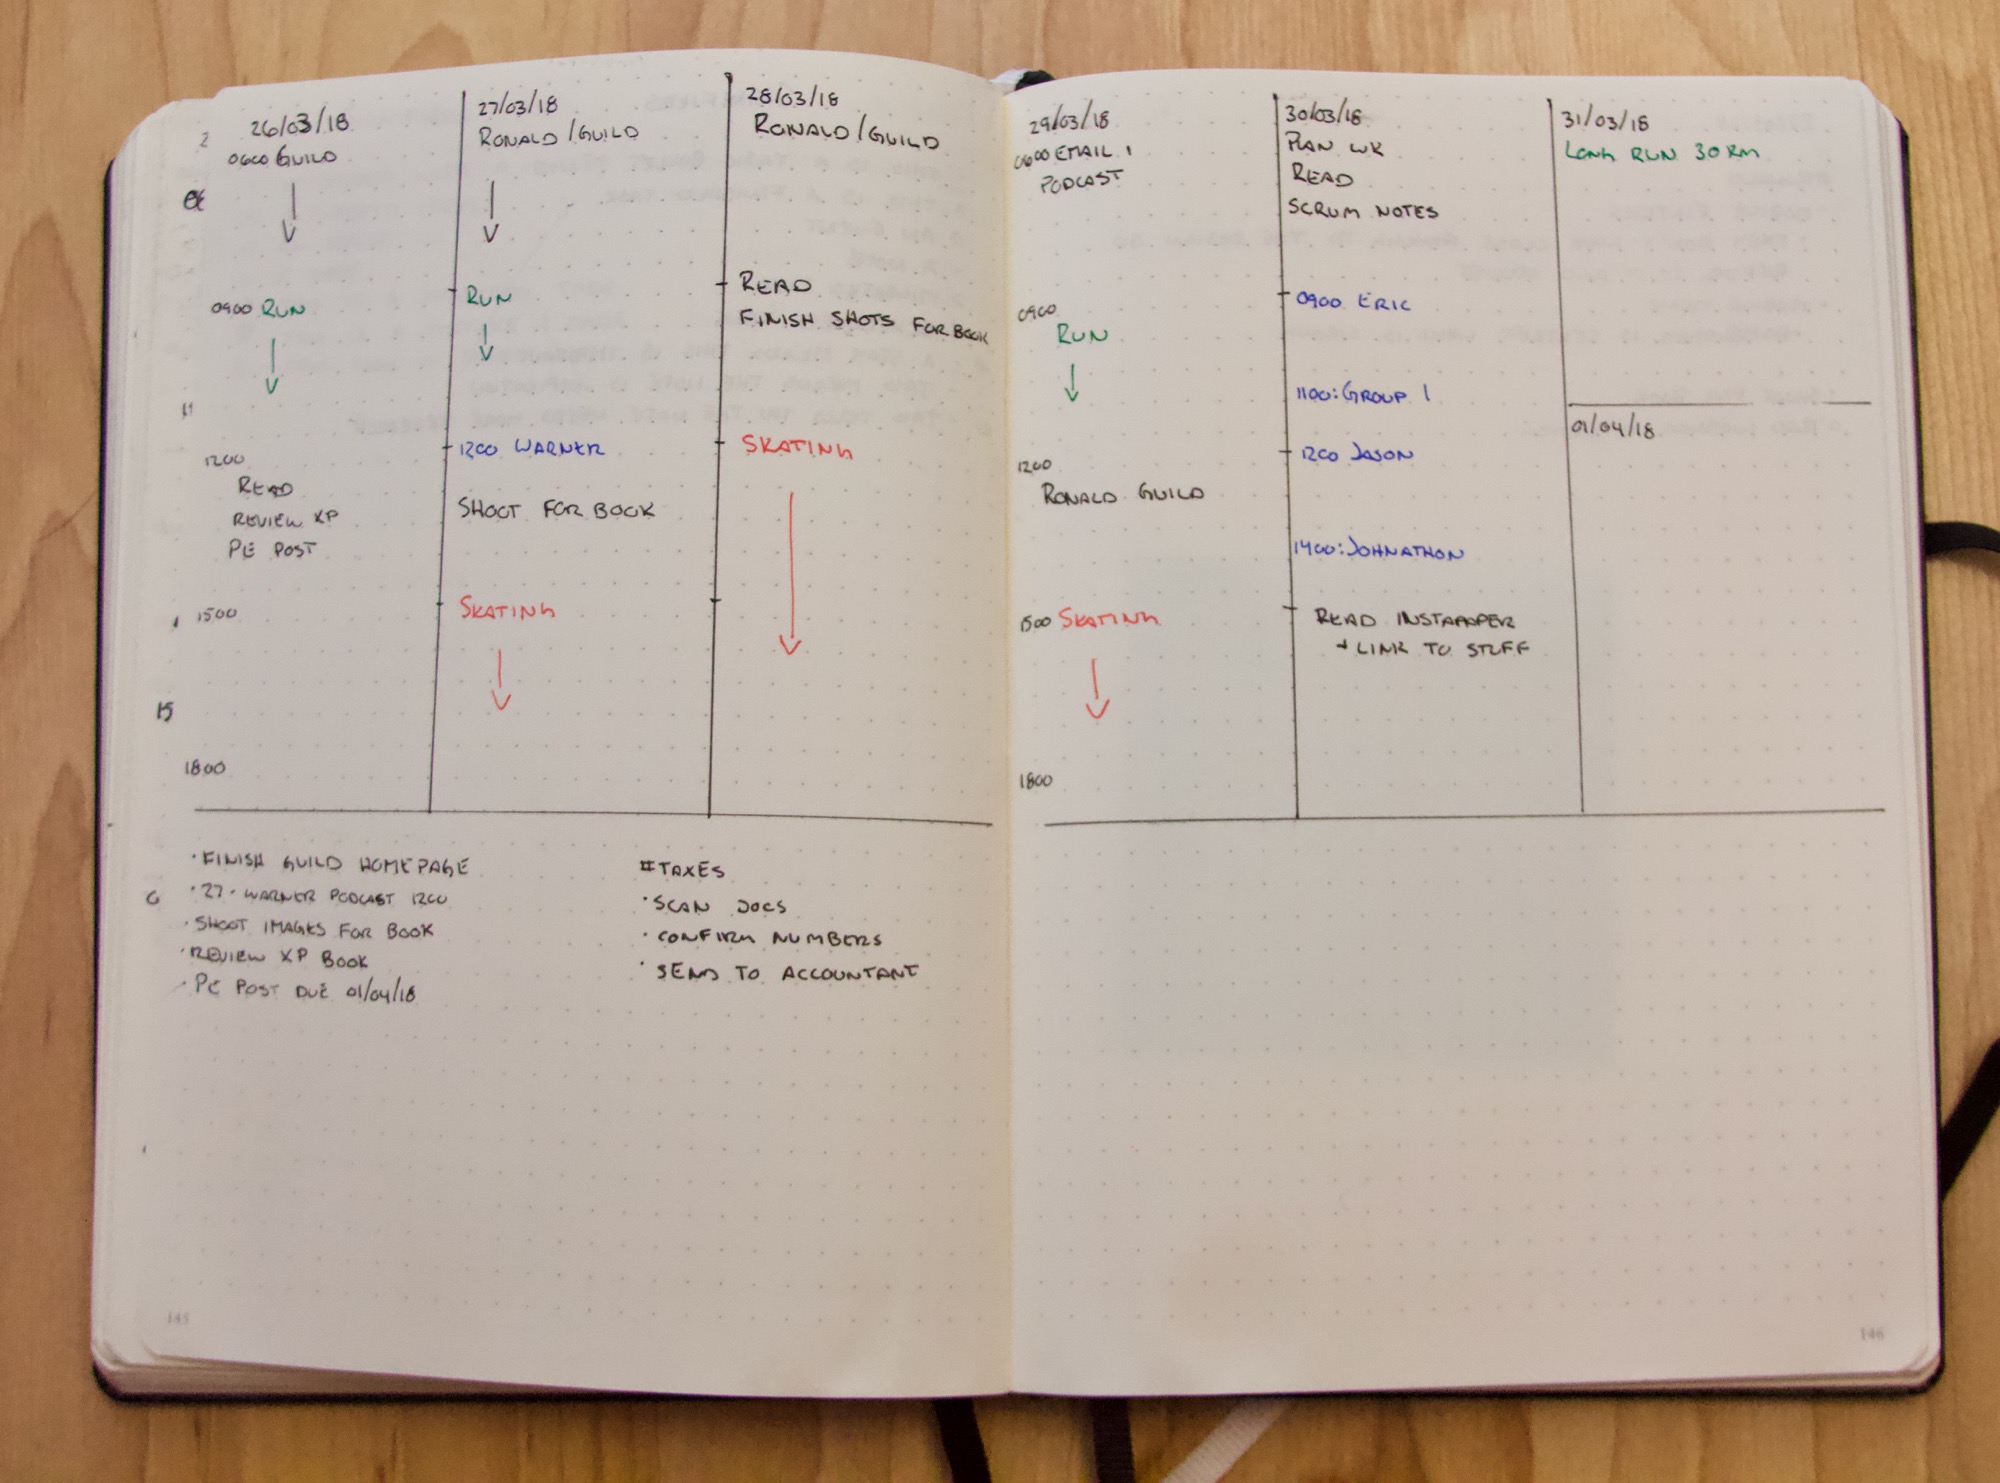 26/03/18
0600 GUILD
0900 RUN
1200
READ
REVIEW XP
PE POST
1500
1800
27/03/18
RONALD/GUILD
RUN
1200 WARNER
SHOOT FOR BOOK
SKATING
28/03/18
RONALD/GUILD
READ
FINISH SHOTS FOR BOOK
SKATING
· FINISH GUILD HOMEPAGE
· 27 · WARNER PODCAST 1200
· SHOOT IMAGES FOR BOOK
· REVIEW XP BOOK
· PE POST DUE 01/04/18
#TAXES
· SCAN DOCS
· CONFIRM NUMBERS
· SEND TO ACCOUNTANT
145
29/03/18
0600 EMAIL
PODCAST
0900
RUN
1200
RONALD GUILD
1500 SKATING
1800
30/03/18
PLAN WK
READ
SCRUM NOTES
0900 ERIC
1100: GROUP 1
1200 JASON
1400: JOHNATHON
READ INSTAPAPER
+ LINK TO STUFF
31/03/18
LONG RUN 30 KM
01/04/18
146